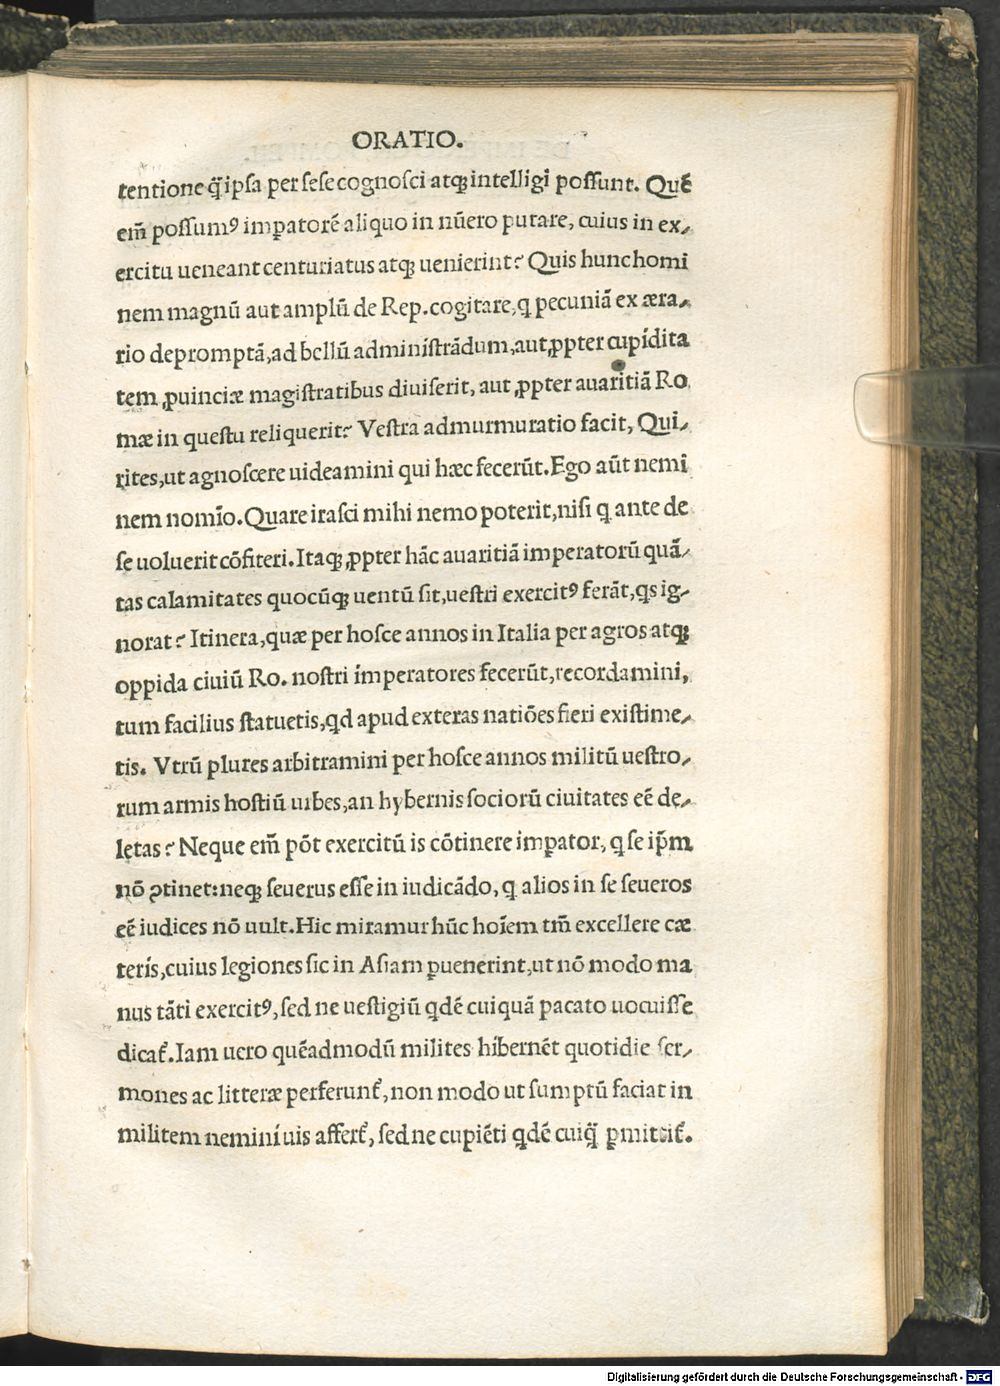 ORATIO.
tentione q̃ ipsa per sese cognosci atq; intelligi possunt. Quẽ
em̃ possumꝰ imꝑatorẽ aliquo in nũero putare, cuius in ex⸗
ercitu ueneant centuriatus atq; uenierint? Quis hunc homi
nem magnũ aut amplũ de Rep. cogitare, q pecuniã ex æra⸗
rio depromptã, ad bellũ administrãdum, aut ꝓpter cupidita
tem ꝓuinciæ magistratibus diuiserit, aut ꝓpter auaritiã Ro
mæ in questu reliquerit? Vestra admurmuratio facit, Qui⸗
rites, ut agnoscere uideamini qui hæc fecerũt. Ego aũt nemi
nem nomĩo. Quare irasci mihi nemo poterit, nisi q ante de
se uoluerit cõfiteri. Itaq; ꝓpter hãc auaritiã imperatorũ quã⸗
tas calamitates quocũq; uentũ sit, uestri exercitꝰ ferãt, qs ig⸗
norat? Itinera, quæ per hosce annos in Italia per agros atq;
oppida ciuiũ Ro. nostri imperatores fecerũt, recordamini,
tum facilius statuetis, qd apud exteras natiões fieri existime⸗
tis. Vtrũ plures arbitramini per hosce annos militũ uestro⸗
rum armis hostiũ urbes, an hybernis sociorũ ciuitates eẽ de⸗
letas? Neque em̃ põt exercitũ is cõtinere imꝑator, q se ip̃m
nõ ꝯtinet: neq; seuerus esse in iudicãdo, q alios in se seueros
eẽ iudices nõ uult. Hic miramur hũc hoĩem tm̃ excellere cæ
teris, cuius legiones sic in Asiam ꝑuenerint, ut nõ modo ma
nus tãti exercitꝰ, sed ne uestigiũ qdẽ cuiquã pacato uocuisse
dicat᷑. Iam uero quẽadmodũ milites hibernẽt quotidie ser⸗
mones ac litteræ perferunt᷑, non modo ut sumptũ faciat in
militem nemini uis affert᷑, sed ne cupiẽti qdẽ cuiq̃ ꝑmittit᷑.
Digitalisierung gefördert durch die Deutsche Forschungsgemeinschaft - DFG